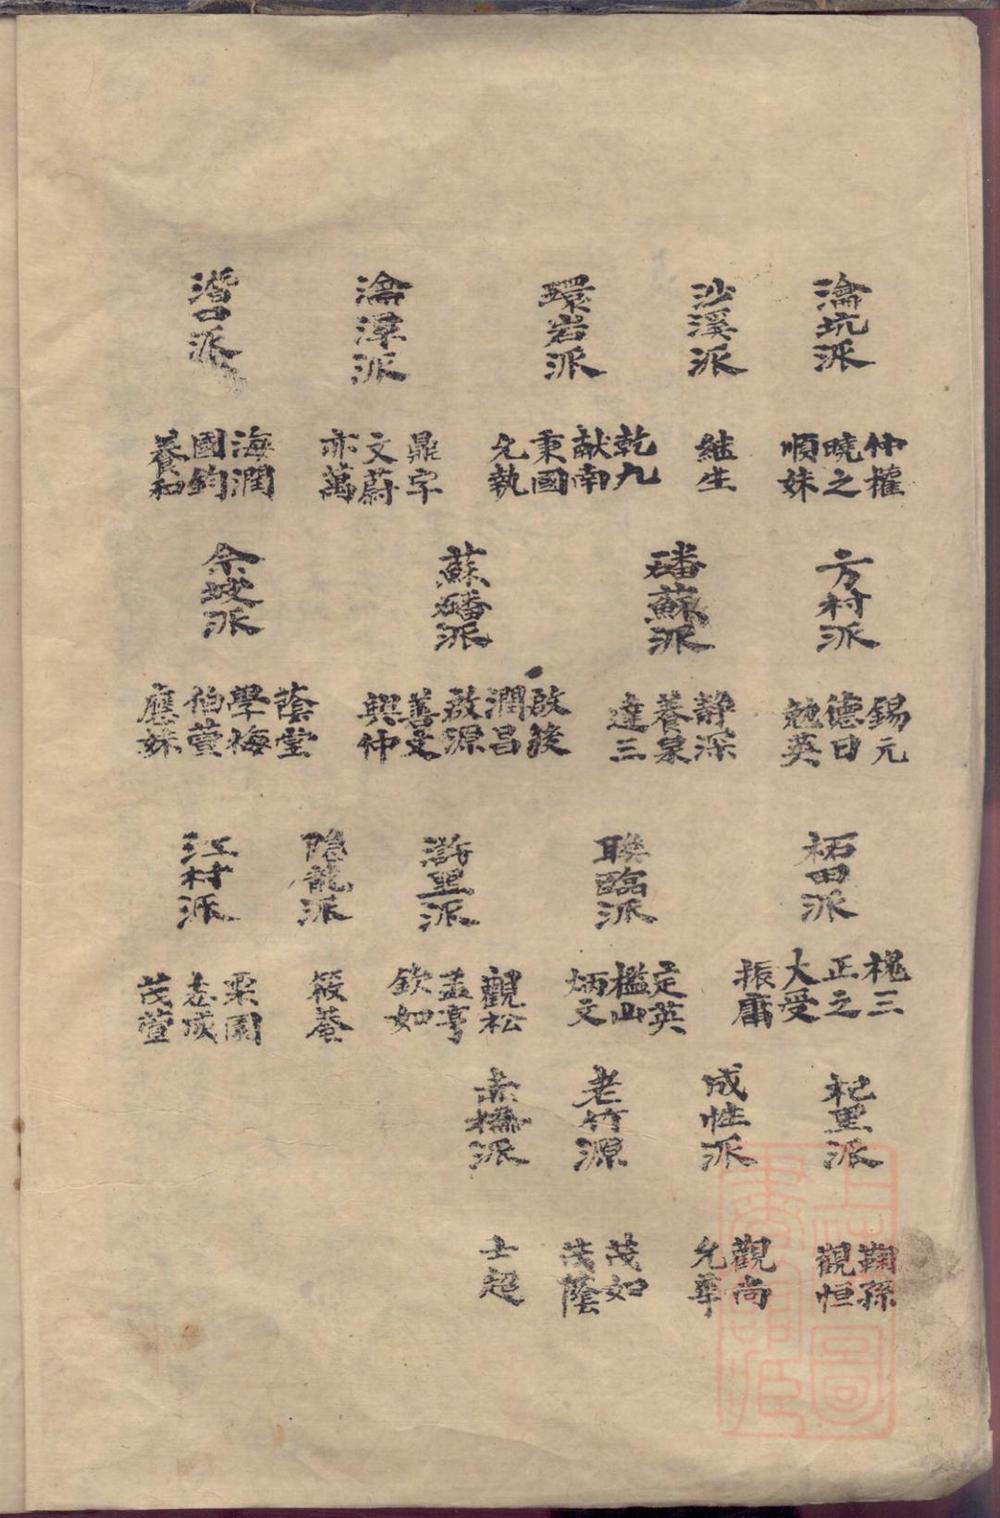 瀹坑派
仲權
曉之
順妹
沙溪派
継生
環岩派
乾九
献南
秉國
允執
瀹潭派
鼎字
文蔚
亦萬
海潤
國鈞
養和
方村派
錫元
德日
勉英
磻蘇派
靜深
養泉
達三
蘇磻派
啟後
潤昌
啟源
善文
興仲
佘坡派
蔭堂
學梅
伯蕢
應妹
柘田派
槐三
正之
大受
振庸
聨臨派
定英
檻山
炳文
滸里派
觀松
孟亨
欽如
隐龍派
筱菴
江村派
栗園
志成
茂萱
杞里派
鞠孫
觀恒
成性派
觀尚
允華
老竹源
茂如
茂蔭
赤橋派
士超